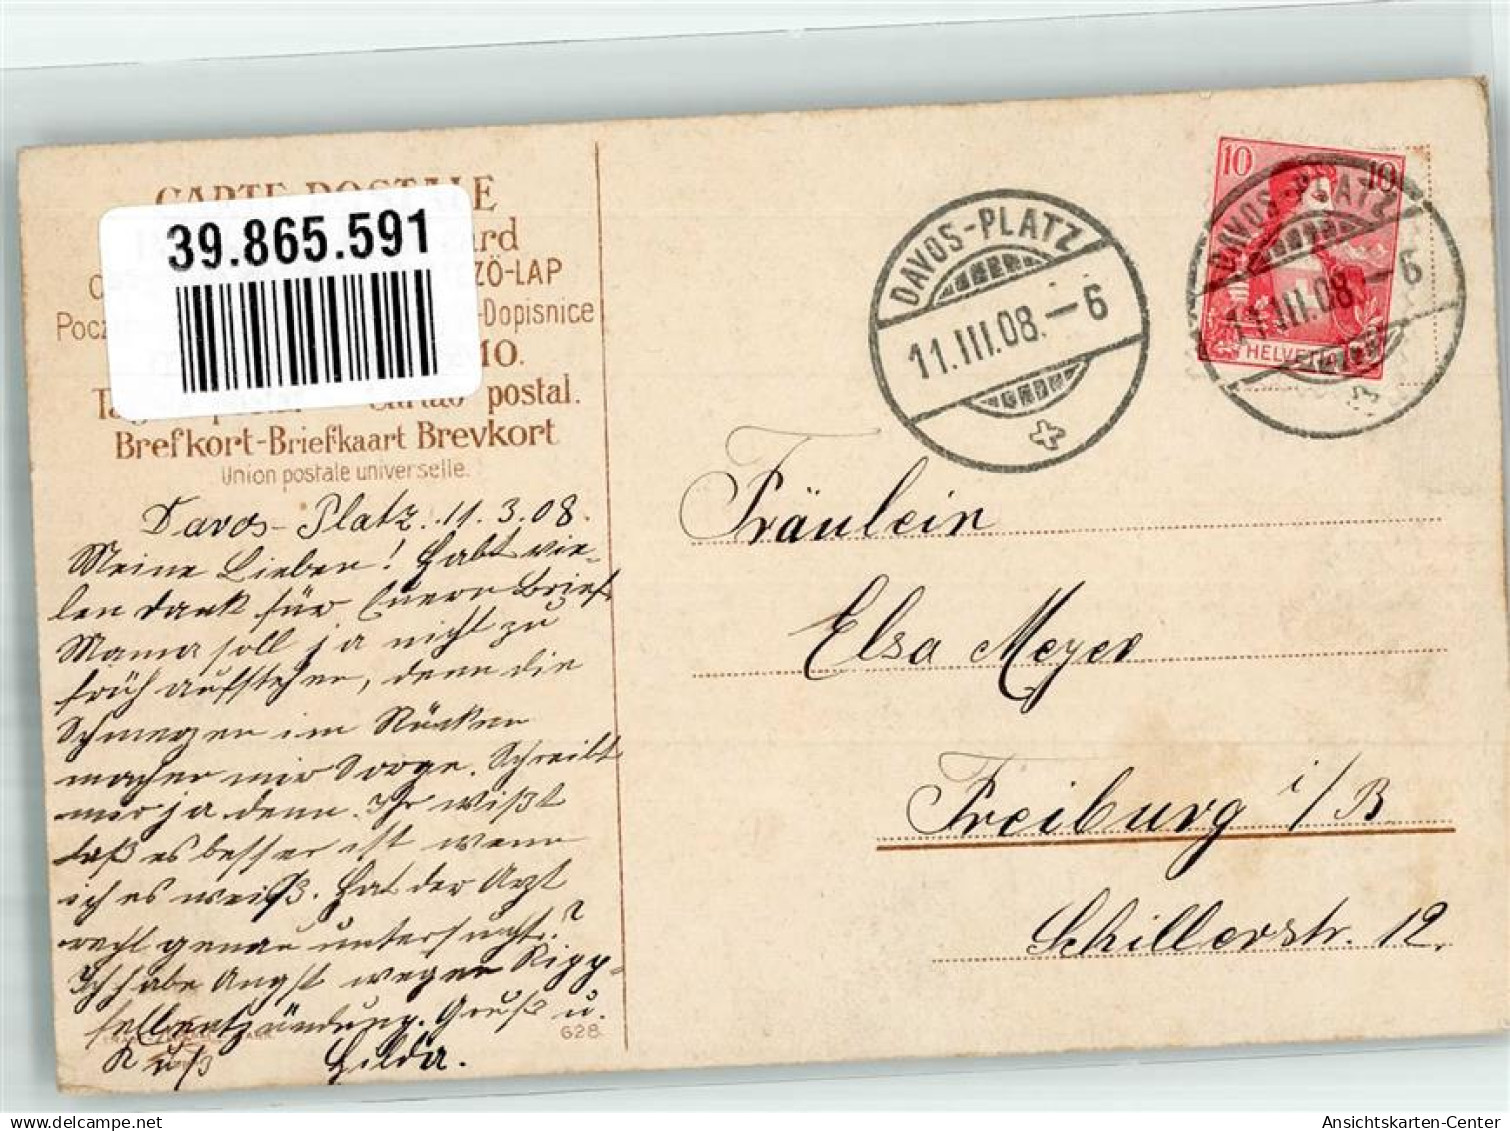 CARTE POSTALE
39.865.591
ard
ZÖ-LAP
Pocz
-Dopisnice
MO.
postal.
Brefkort-Briefkaart Brevkort
Union postale universelle.
Davos-Platz. 11.3.08.
Meine Lieben! Habt vie-
len Dank für Euern Brief.
Mama soll ja nicht zu
früh aufstehen, denn die
Schmerzen im Rücken
machen mir Sorge. Schreibt
mir ja denn. Ihr wißt
daß es besser ist wenn
ich es weiß. Hat der Arzt
recht genau untersucht?
Ich habe Angst wegen Ripp-
fellentzündung. Gruß u.
Kuß Hilda.
628
DAVOS-PLATZ
11.III.08.-6
10 10
HELVETIA
DAVOS-PLATZ
11.III.08.-6
Fräulein
Elsa Meyer
Freiburg i/B
Schillerstr. 12.
delcampe.net
Ansichtskarten-Center